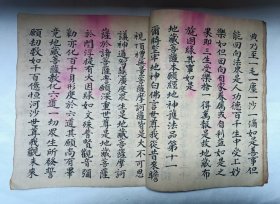 或乃至一毛一塵一沙一渧如是善事但
能回向法界是人功德百千生中受上妙
樂如但回向自家眷屬或自身利益如是之
果即三生受樂捨一得萬報是故地藏布
施因緣其事如是
地藏菩薩本願經地神護法品第十一
爾時堅牢地神白佛言世尊我從昔來瞻
視頂禮無量菩薩摩訶薩皆是大不可思
議神通智慧廣度眾生是地藏菩薩摩訶
薩於諸菩薩誓願深重世尊是地藏菩薩
於閻浮提有大因緣如文殊普賢觀音彌
勒亦化百千身形度於六道其願尚有畢
竟地藏菩薩教化六道一切眾生所發誓
願劫數如千百億恒河沙世尊我觀未來